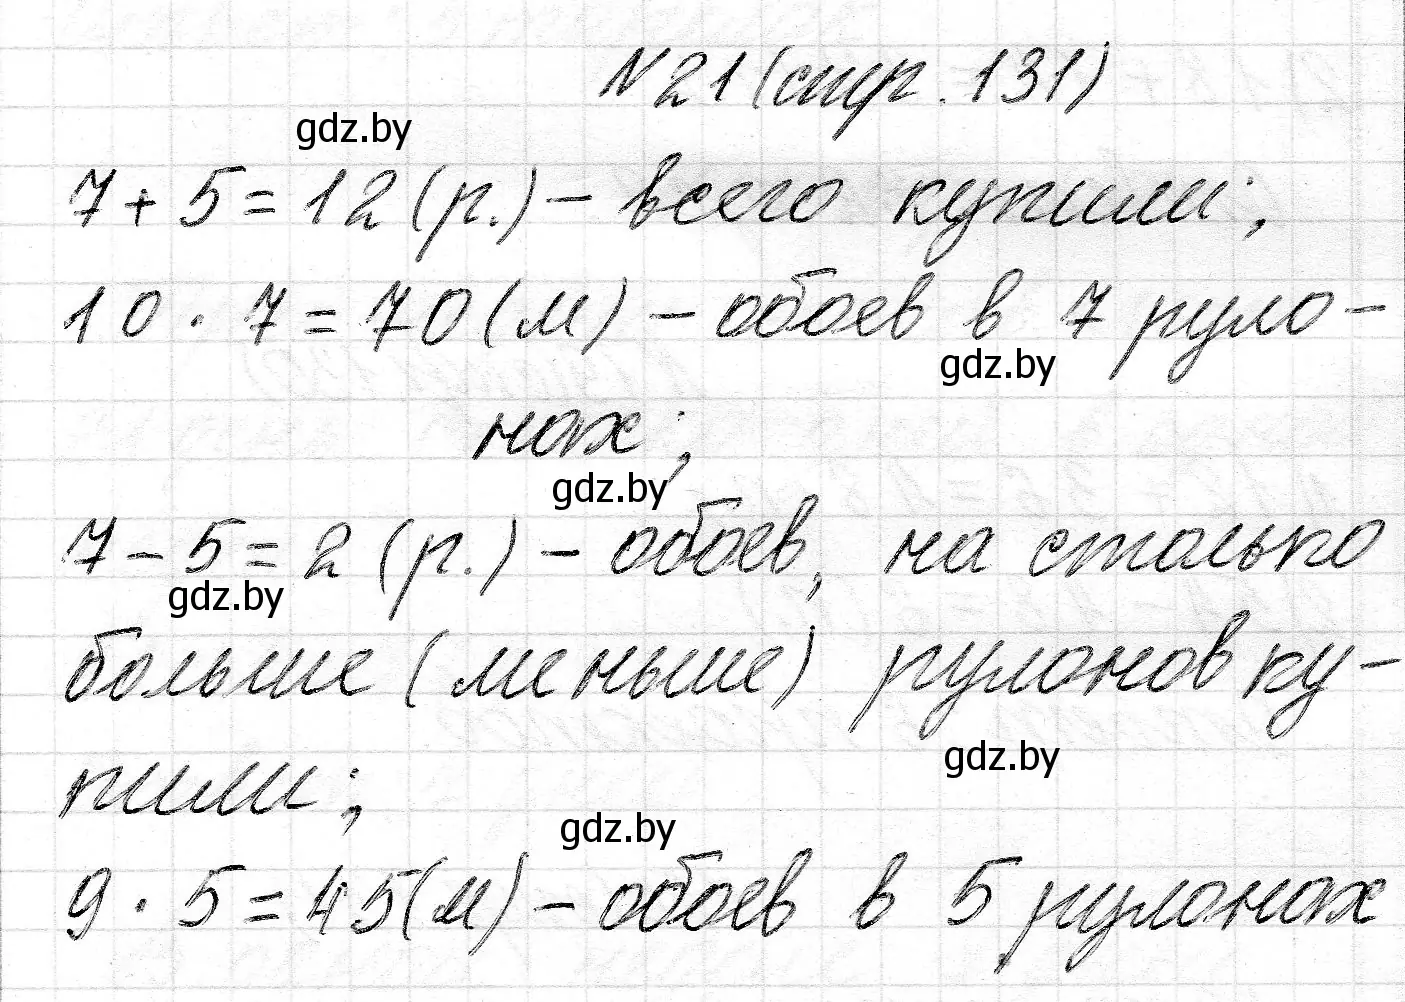 N 21 (стр. 131)
gdz.by
7 + 5 = 12 (р.) – всего купили;
10 · 7 = 70 (м) – обоев в 7 руло-
gdz.by
нах;
gdz.by
7 – 5 = 2 (р.) – обоев, на столько
gdz.by
больше (меньше) рулонов ку-
gdz.by
пили;
gdz.by
9 · 5 = 45 (м) – обоев в 5 рулонах